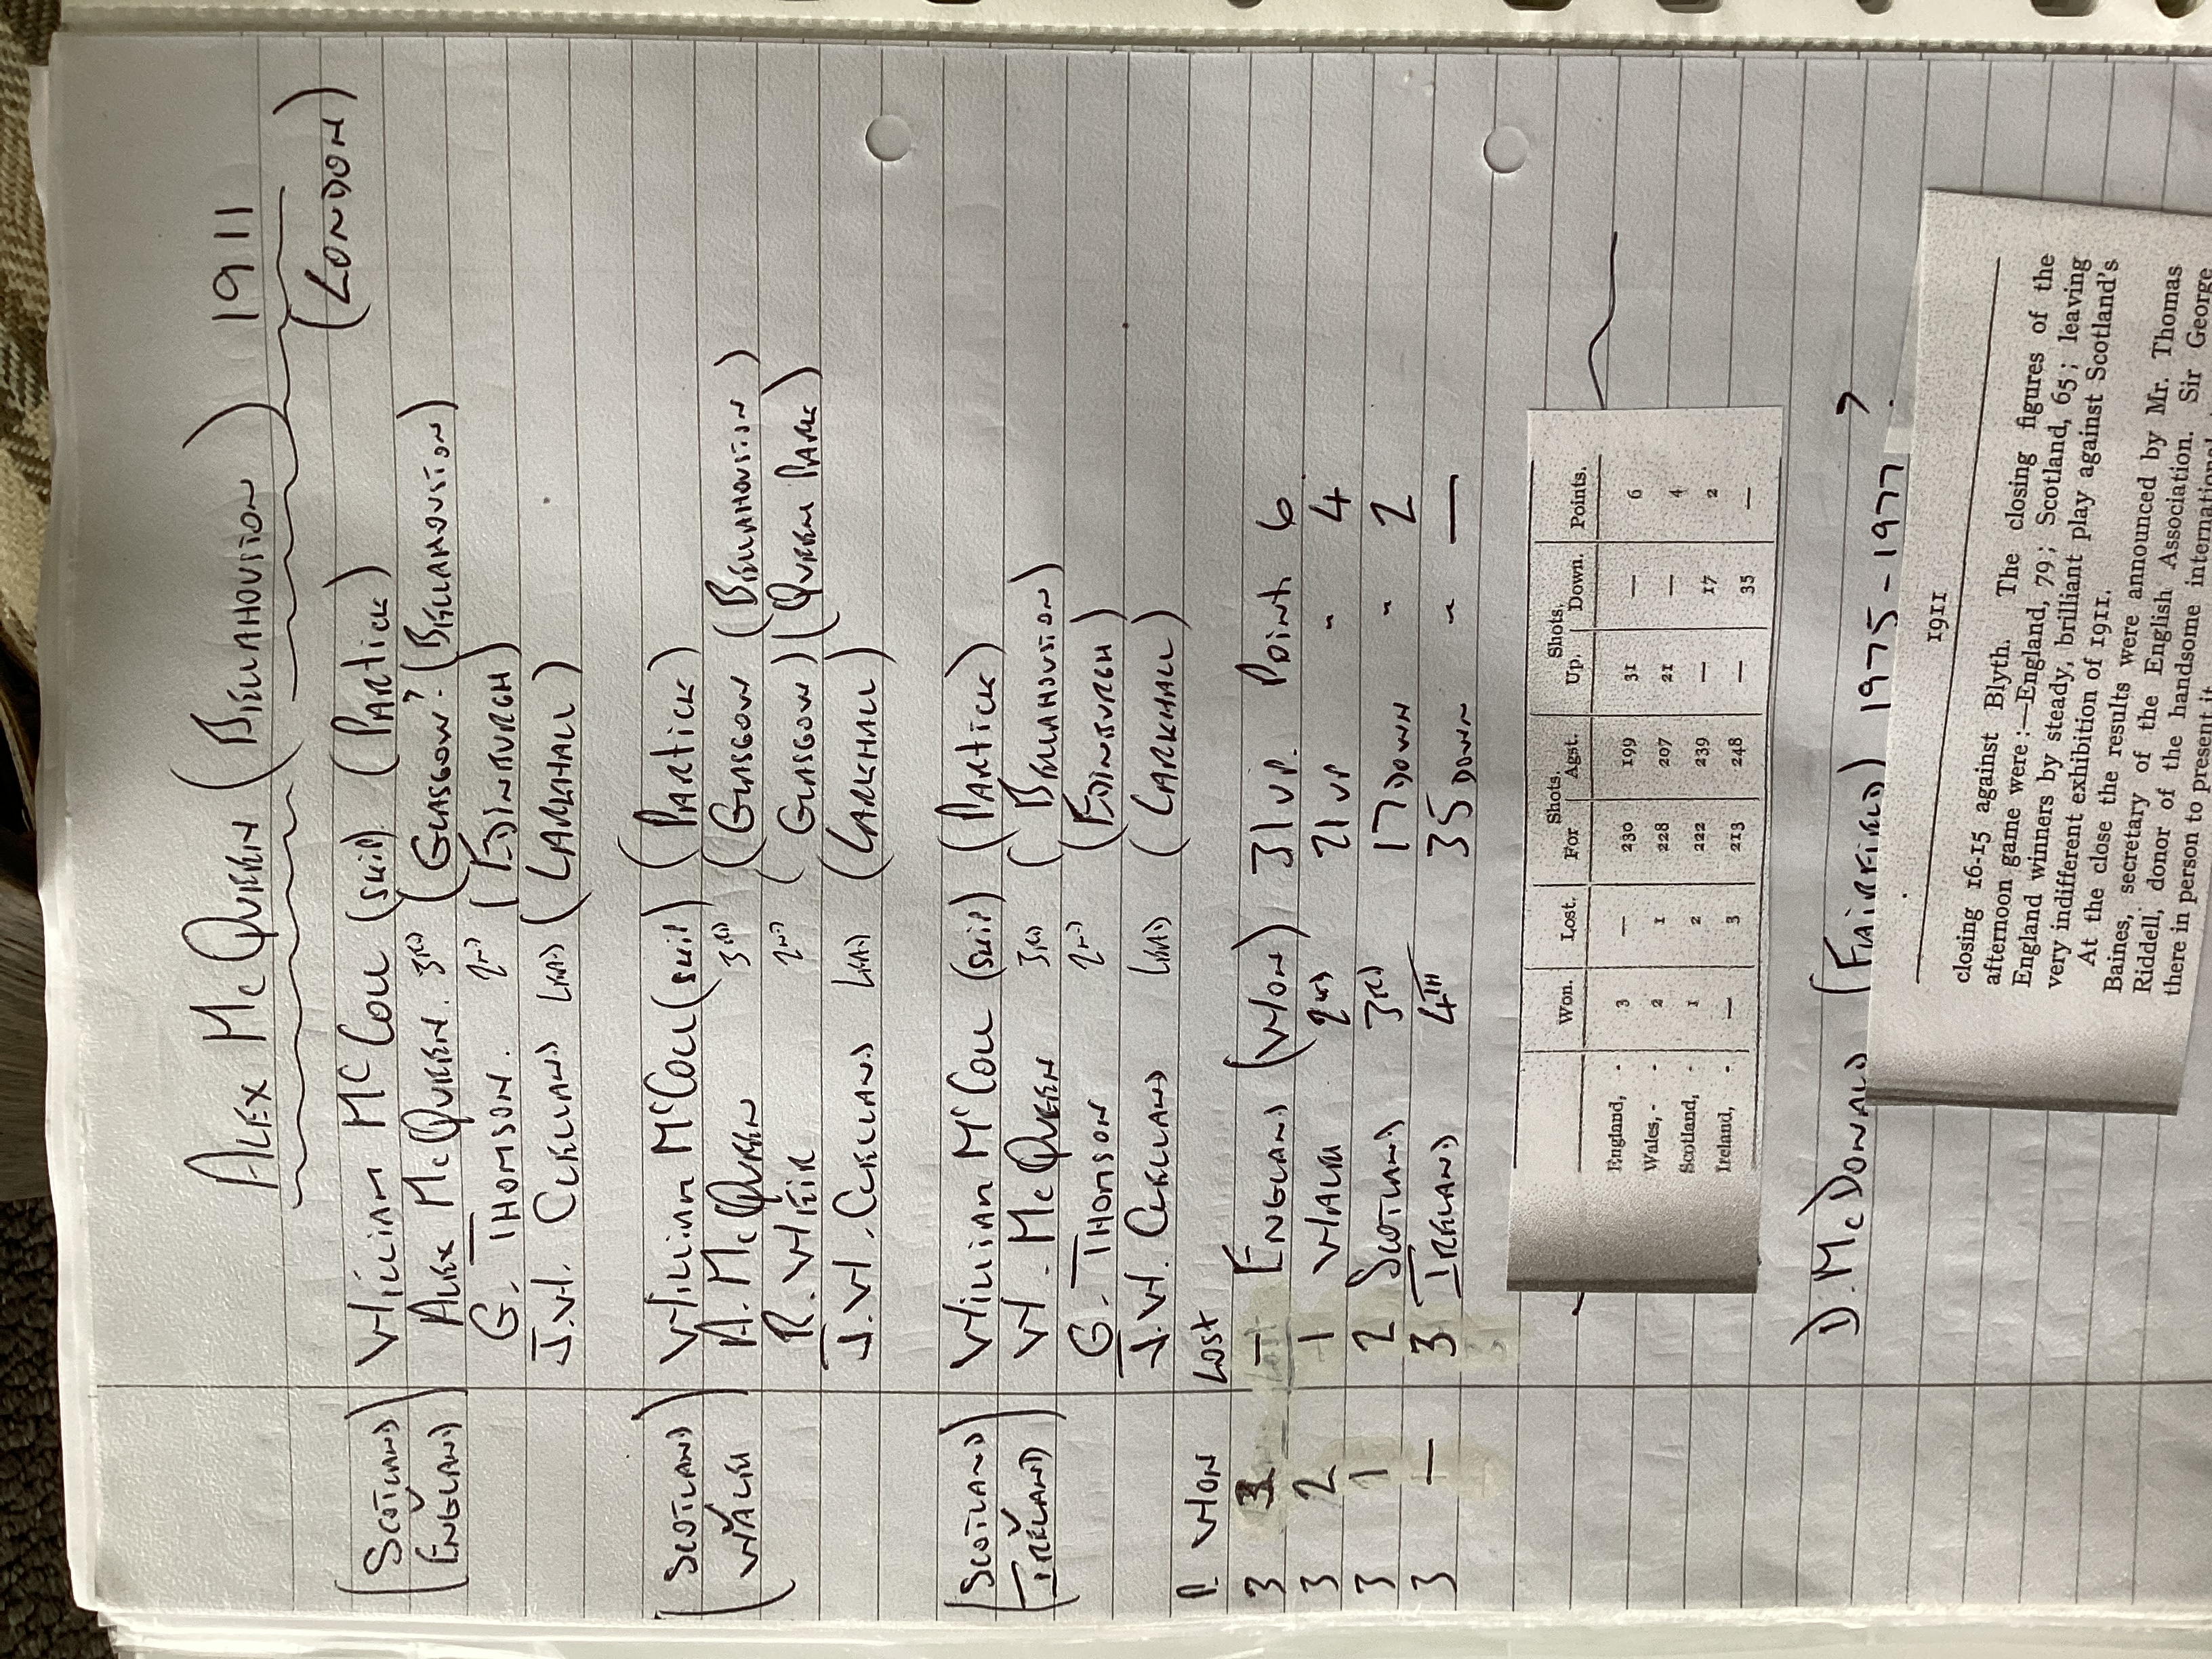 ALEX McQUEEN (BELLAHOUSTON) 1911
(LONDON)
(SCOTLAND) WILLIAM McCOLL (SKIP) (PARTICK)
(ENGLAND) ALEX McQUEEN. 3RD (GLASGOW? (BELLAHOUSTON)
G. THOMSON. 2ND (EDINBURGH)
J.W. CLELLAND LEAD (LARKHALL)
(SCOTLAND) WILLIAM McCOLL (SKIP) (PARTICK)
(WALES A. McQUEEN 3RD (GLASGOW (BELLAHOUSTON)
R. WEIR 2ND (GLASGOW) (QUEENS PARK)
J.W. CLELLAND LEAD (LARKHALL)
(SCOTLAND) WILLIAM McCOLL (SKIP) (PARTICK)
(IRELAND) W. McQUEEN 3RD (BELLAHOUSTON)
G. THOMSON 2ND (EDINBURGH)
J.W. CLELLAND LEAD (LARKHALL)
P. WON LOST
3 3 — ENGLAND (WON) 31 UP. POINTS 6
3 2 1 WALES 2ND 21 UP " 4
3 1 2 SCOTLAND 3RD 17 DOWN " 2
3 — 3 IRELAND 4TH 35 DOWN " —
Shots. Shots.
Won. Lost. For Agst. Up. Down. Points.
England, - 3 — 230 199 31 — 6
Wales, - - 2 1 228 207 21 — 4
Scotland, - 1 2 222 239 — 17 2
Ireland, - — 3 213 248 — 35 —
D. McDONALD (FAIRFIELD) 1975-1977 ?
1911
closing 16-15 against Blyth. The closing figures of the
afternoon game were :—England, 79; Scotland, 65; leaving
England winners by steady, brilliant play against Scotland's
very indifferent exhibition of 1911.
At the close the results were announced by Mr. Thomas
Baines, secretary of the English Association. Sir George
Riddell, donor of the handsome international
there in person to present it